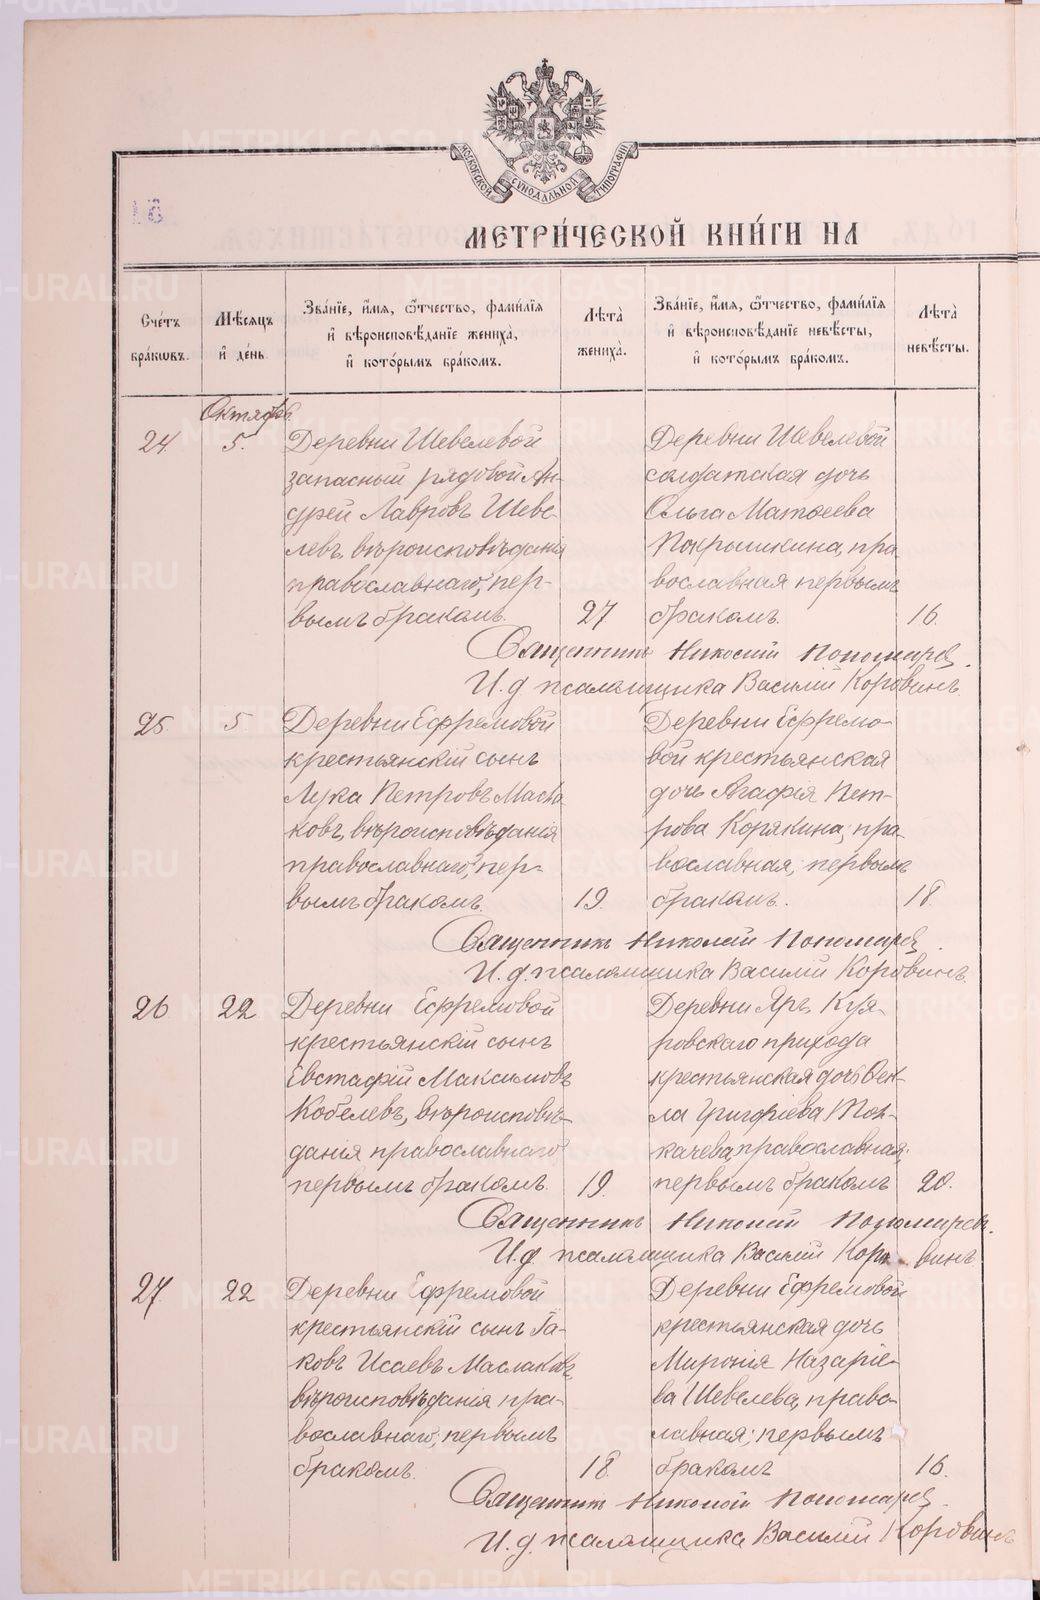 МОСКОВСКОЙ СУНОДАЛЬНОЙ ТИПОГРАФІИ
МЕТРИ́ЧЕСКОЙ КНИ́ГИ НА
Сче́тъ бра́кѡвъ.
Мѣ́сяцъ и҆ де́нь.
Зва́нїе, и҆́мя, ѻ҆́тчество, фами́лїя и҆ вѣроисповѣ́данїе жениха̀, и҆ кото́рымъ бра́комъ.
Лѣта̀ жениха̀.
Зва́нїе, и҆́мя, ѻ҆́тчество, фами́лїя и҆ вѣроисповѣ́данїе невѣ́сты, и҆ кото́рымъ бра́комъ.
Лѣта̀ невѣ́сты.
Октябрь.
24. 5.
Деревни Шевелевой
запасный рядовой Ан-
дрей Лавровъ Шеве-
левъ, вѣроисповѣданія
православнаго, пер-
вымъ бракомъ. 27
Деревни Шевелевой
солдатская дочь
Ольга Матѳеева
Покрышкина, пра-
вославная первымъ
бракомъ. 16.
Священникъ Николай Пономарев.
И. д. псаломщика Василій Коровинъ.
25. 5.
Деревни Ефремовой
крестьянскій сынъ
Лука Петровъ Масла
ковъ, вѣроисповѣданія
православнаго, пер-
вымъ бракомъ. 19.
Деревни Ефремо-
вой крестьянская
дочь Агафія Пет-
рова Корякина, пра-
вославная, первымъ
бракомъ. 18
Священникъ Николай Пономарев.
И. д. псаломщика Василій Коровинъ.
26 22
Деревни Ефремовой
крестьянскій сынъ
Евстафій Максимовъ
Кобелевъ, вѣроисповѣ-
данія православнаго
первымъ бракомъ. 19.
Деревни Яръ, Куя-
ровскаго прихода
крестьянская дочь Ѳек-
ла Григоріева Тол-
качева, православная,
первымъ бракомъ 20.
Священникъ Николай Пономарев.
И. д. псаломщика Василій Коровинъ
27. 22
Деревни Ефремовой
крестьянскій сынъ Іа-
ковъ Исаевъ Маслаковъ,
вѣроисповѣданія пра-
вославнаго, первымъ
бракомъ. 18.
Деревни Ефремовой
крестьянская дочь
Миронія Назаріе-
ва Шевелева, право-
славная, первымъ
бракомъ 16.
Священникъ Николай Пономарев.
И. д. псаломщика Василій Коровинъ
METRIKI.GASO-URAL.RU